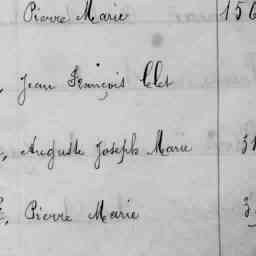 Pierre Marie 156
Jean François Clet
Auguste Joseph Marie
Pierre Marie